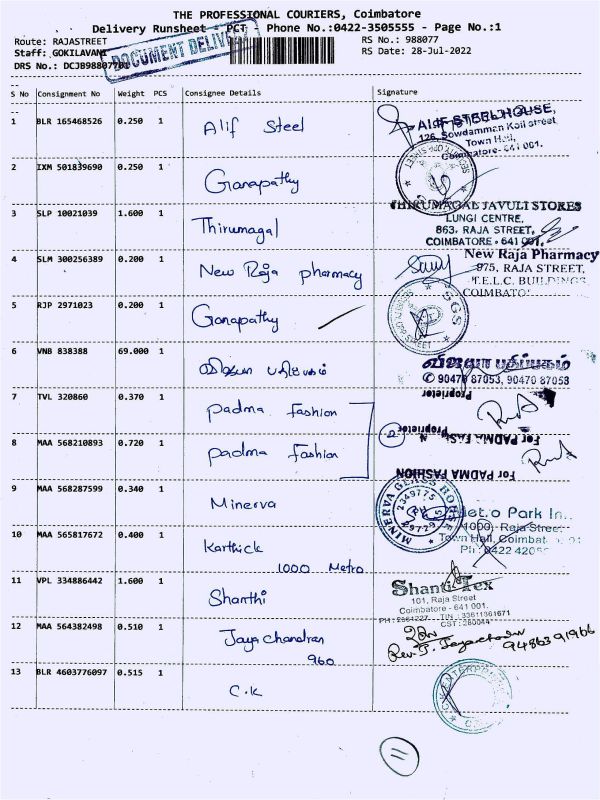 THE PROFESSIONAL COURIERS, Coimbatore
Delivery Runsheet : PCT Phone No.:0422-3505555 - Page No.:1
Route: RAJASTREET RS No.: 988077
Staff: GOKILAVANI RS Date: 28-Jul-2022
DRS No.: DCJB98807701
DOCUMENT DELIVERY
S No Consignment No Weight PCS Consignee Details Signature
1 BLR 165468526 0.250 1 Alif Steel
ALIF STEEL HOUSE,
126, Sowdamman Koil street,
Town Hall,
Coimbatore- 641 001.
2 IXM 501839690 0.250 1 Ganapathy
3 SLP 10021039 1.600 1 Thirumagal
THIRUMAGAL JAVULI STORES
LUNGI CENTRE,
863, RAJA STREET,
COIMBATORE - 641 001.
4 SLM 300256389 0.200 1 New Raja pharmacy
New Raja Pharmacy
975, RAJA STREET,
T.E.L.C. BUILDINGS
COIMBATO
5 RJP 2971023 0.200 1 Ganapathy
SGS
STREET
6 VNB 838388 69.000 1 விஜயா பதிப்பகம்
விஜயா பதிப்பகம்
✆ 90470 87053, 90470 87053
7 TVL 320860 0.370 1 padma fashion
Proprietor
8 MAA 568210893 0.720 1 padma fashion
2
For PADMA FAS
Proprietor
For PADMA FASHION
9 MAA 568287599 0.340 1 Minerva
MINERVA GLASS HOUSE
2349775
2397295
10 MAA 565817672 0.400 1 Karthick
1000 Metro
Metro Park In
1000, Raja Street
Town Hall, Coimbat
Ph: 0422 4205
11 VPL 334886442 1.600 1 Shanthi
Shanti Tex
101, Raja Street
Coimbatore - 641 001.
PH : 2661227 TIN : 33611361671
CST : 280044
12 MAA 564382498 0.510 1 Jayachandran
960
Rev. J. Jayachandran
9486391966
13 BLR 4603776097 0.515 1 C.K